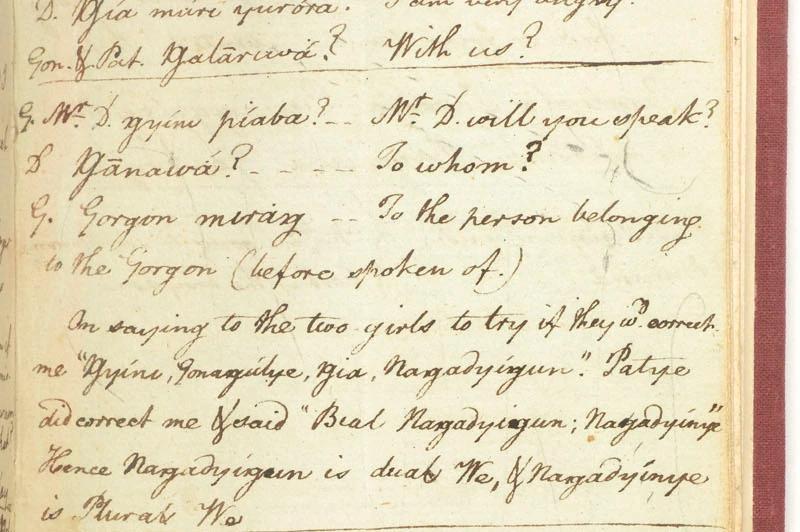 D. Ŋía mari yuróra. I am very angry.
Gon. & Pat. Ŋalāriwá? With us?
G. Mr. D. ŋyíni píaba? -- Mr. D. will you speak?
D. Ŋānawá? - - - - To whom?
G. Gorgon miráŋ -- To the person belonging
to the Gorgon (before spoken of.)
In saying to the two girls to try if they wd. correct
me "Ŋyíni, Gonaŋúlye, ŋia, Naŋadyíŋun". Patye
did correct me & said "Bial Naŋadyíŋun; Naŋadyínye"
Hence Naŋadyíŋun is dual We, & Naŋadyínye
is Plural We